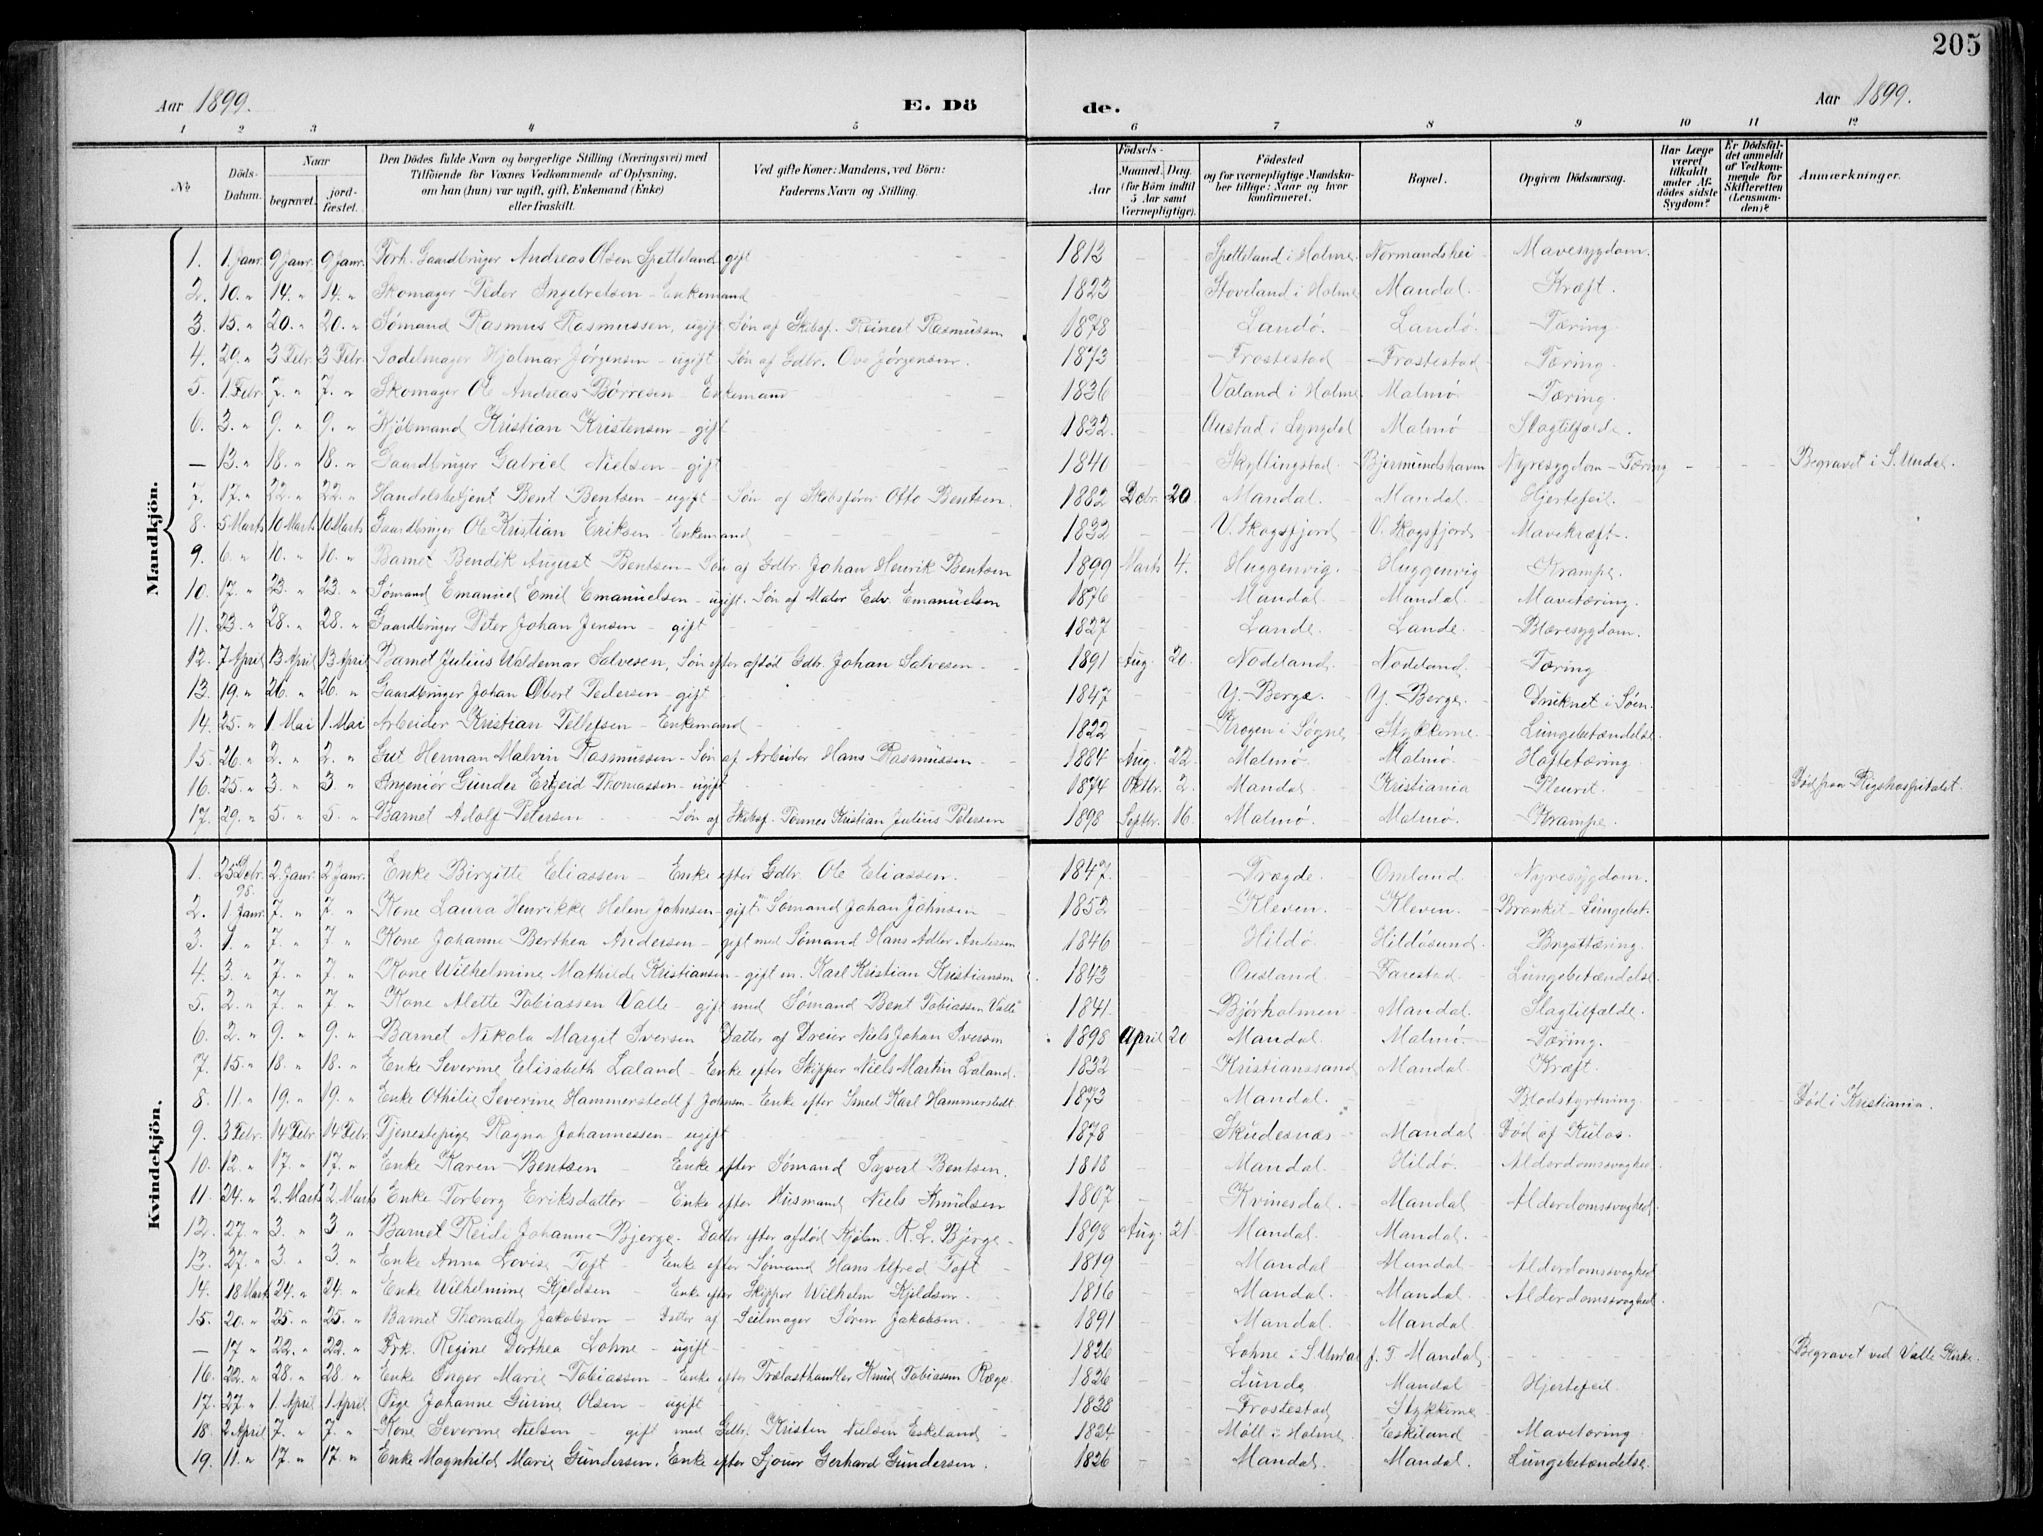 205
Aar 1899. E. Dö de. Aar 1899.
1 2 3 4 5 6 7 8 9 10 11 12
No. Döds-Datum. Naar begravet. jordfæstet. Den Dödes fulde Navn og borgerlige Stilling (Næringsvei) med Tilföiende for Voxnes Vedkommende af Oplysning, om han (hun) var ugift, gift, Enkemand (Enke) eller fraskilt. Ved gifte Koner: Mandens, ved Börn: Faderens Navn og Stilling. Födsels- Aar Maaned. Dag. (for Börn indtil 5 Aar samt Værnepligtige). Födested og for værnepligtige Mandskaber tillige: Naar og hvor konfirmeret. Bopæl. Opgiven Dödsaarsag. Har Læge været tilkaldt under Afdödes sidste Sygdom? Er Dödsfaldet anmeldt af Vedkommende for Skifteretten (Lensmanden)? Anmærkninger.
Mandkjön.
1. 1 Janr. 9 Janr. 9 Janr. Forh. Gaardbruger Andreas Olsen Spetteland gift 1813 Spetteland i Holme. Normandshei Mavesygdom.
2. 10. " 14. " 14. " Skomager Peder Ingebretsen - Enkemand 1823 Stoveland i Holme Mandal. Kræft.
3. 15. " 20. " 20. " Sømand Rasmus Rasmussen, ugift Søn af Skibsf. Reinert Rasmussen 1878 Landø. Landø. Tæring.
4. 29. " 3 Febr. 3 Febr. Sadelmager Hjalmar Jørgensen - ugift Søn af Gdbr. Ove Jørgensen. 1873 Frostestad Frostestad Tæring.
5. 1 Febr. 7. " 7. " Skomager Ole Andreas Børresen Enkemand 1836 Valand i Holme Malmø. Tæring.
6. 3. " 9. " 9. " Kjøbmand Kristian Kristensen - gift 1832. Austad i Lyngdal Malmø Slagtilfælde.
— 13. " 18. " 18. " Gaardbruger Gabriel Nielsen - gift 1840 Skyllingstad. Bjermundshavn Nyresygdom - Tæring Begravet i S. Undal.
7. 17. " 22. " 22. " Handelsbetjent Bent Bentsen - ugift - Søn af Skibsfører Otto Bentsen. 1882 Dcbr. 20 Mandal. Mandal. Hjertefeil.
8. 5 Marts 10 Marts 10 Marts Gaardbruger Ole Kristian Eriksen - Enkemand 1832 V. Skogsfjord V. Skogsfjord Mavekræft.
9. 6. " 10. " 10. " Barnet Bendik August Bentsen - Søn af Gdbr. Johan Henrik Bentsen 1899 Marts 4. Huggenvig. Huggenvig Krampe.
10. 17. " 23. " 23. " Sømand Emanuel Emil Emanuelsen - ugift. Søn af Maler Edv. Emanuelsen 1876 Mandal. Mandal. Mavetæring.
11. 23. " 28. " 28. " Gaardbruger Peter Johan Jensen - gift 1827 Lande. Lande. Blæresygdom.
12. 7 April 13 April 13 April Barnet Julius Waldemar Salvesen, Søn efter afdød Gdbr. Johan Salvesen 1891 Aug. 20. Nodeland. Nodeland. Tæring
13. 19. " 26. " 26. " Gaardbruger Johan Albert Pedersen - gift 1847 Y. Berge. Y. Berge. Druknet i Søen.
14. 25. " 1 Mai 1 Mai Arbeider Kristian Tellefsen - Enkemand 1822 Krogen i Søgne Stykkerne. Lungebetændelse
15. 26. " 2. " 2. " Gut Herman Malvin Rasmussen - Søn af Arbeider Hans Rasmussen 1884 Aug. 22. Malmø. Malmø. Hoftetæring.
16. 25. " 3. " 3. " Ingeniør Gunder Thomassen - ugift 1874 Oktbr. 2. Mandal Kristiania Pleurit. Død paa Rigshospitalet.
17. 29. " 5. " 5. " Barnet Adolf Petersen Søn af Skibsf. Tønnes Kristian Julius Petersen 1898 Septbr. 16. Malmø. Malmø. Krampe.
Kvindekjön.
1. 25 Dcbr. 98. 2 Janr. 2 Janr. Enke Birgitte Eliassen - Enke efter Gdbr. Ole Eliassen. 1847. Trægde. Omland. Nyresygdom.
2. 1 Janr. 7. " 7. " Kone Laura Henrikke Helene Johnsen - gift m. Sømand Johan Johnsen 1852 Kleven. Kleven. Bronkit - Lungebet.
3. 1. " 7. " 7. " Kone Johanne Berthea Andersen - gift med Sømand Hans Adler Andersen 1846 Hildø. Hildøsund. Brysttæring.
4. 3. " 7. " 7. " Kone Wilhelmine Mathilde Kristiansen - gift m. Karl Kristian Kristiansen 1843 Ousland. Farestad. Lungebetændelse
5. 2. " 7. " 7. " Kone Alette Tobiassen Valle - gift med Sømand Bent Tobiassen Valle 1841. Bjørholmen Mandal. Slagtilfælde.
6. 2. " 9. " 9. " Barnet Nikola Margit Iversen Datter af Dreier Niels Johan Iversen 1898 April 20 Mandal. Malmø. Tæring.
7. 15. " 18. " 18. " Enke Severine Elisabeth Laland - Enke efter Skipper Niels Martin Laland. 1832 Kristianssand Mandal. Kræft.
8. 11. " 19. " 19. " Enke Othilie Severine Hammerstedt f. Johnsen - Enke efter Smed Karl Hammerstedt 1873 Mandal. Blodstyrtning. Død i Kristiania.
9. 3 Febr. 14 Febr 14 Febr. Tjenestepige Ragna Johannessen - ugift 1878 Skudesnæs Mandal Død af Kulos.
10. 12. " 17. " 17. " Enke Karen Bentsen Enke efter Sømand Sivert Bentsen. 1818 Mandal. Hildø. Alderdomssvaghed
11. 24. " 2. Marts 2. Marts Enke Torborg Eriksdatter - Enke efter Husmand Niels Knudsen 1807 Kvinesdal. Mandal Alderdomssvaghed
12. 27. " 3. " 3. " Barnet Reidi Johanne Bjerge. Datter efter afdød Skølm. R. L. Bjerge. 1898 Aug. 21. Mandal. Mandal.
13. 27. " 3. " 3. " Enke Anna Lovise Toft - Enke efter Sømand Hans Alfred Toft 1819 Mandal Mandal Alderdomssvaghed
14. 18 Marts 24. " 24. " Enke Wilhelmine Kjeldsen Enke efter Skipper Wilhelm Kjeldsen. 1816 Mandal. Mandal. Alderdomssvaghed.
15. 20. " 25. " 25. " Barnet Thomally Jakobsen - Datter af Seilmager Søren Jakobsen. 1891 Mandal. Mandal.
— 17 " 22. " 22. " Frk. Regine Dorthea Lohne - ugift 1826 Lohne i S. Undal f. T. Mandal. Begravet ved Valle Kirke.
16. 22. " 28. " 28. " Enke Inger Marie Tobiassen - Enke efter Trælasthandler Knud Tobiassen Ræge. 1826 Lunde Mandal Hjertefeil.
17. 27. " 1 April 1 April Pige Johanne Gurine Olsen - ugift 1838 Frostestad Stykkerne
18. 2 April 7. " 7. " Kone Severine Nielsen - gift med Gdbr. Kristen Nielsen Eskeland 1824 Møll i Holme Eskeland Mavetæring.
19. 11. " 17. " 17. " Enke Magnhild Marie Gundersen. Enke efter Sjouer Gerhard Gundersen. 1826 Mandal. Mandal. Lungebetændelse.